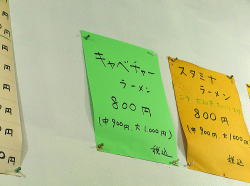 キャベチャー
ラーメン
800円
(中900円、大1,000円)
税込
スタミナ
ラーメン
800円
(中900円、大1,000
税込
円
円
円